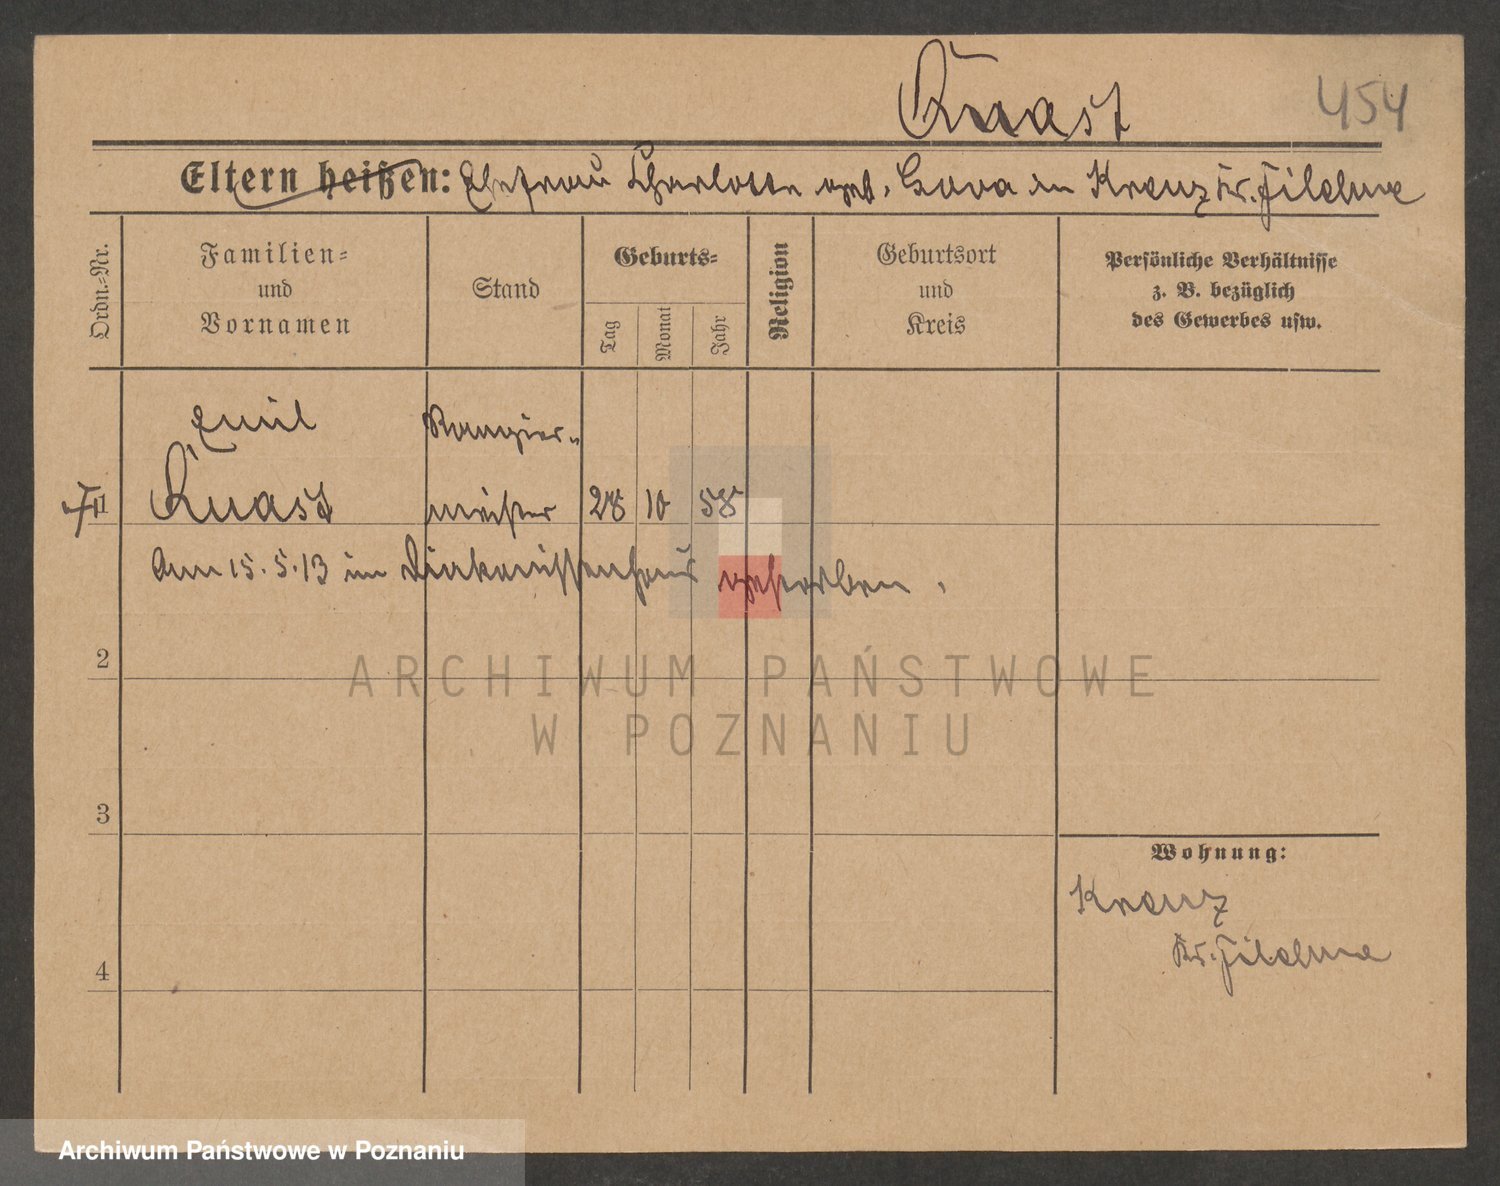 Quast 454
Eltern heißen: Ehefrau Charlotte geb. in Kreuz Kr. Filehne
Ordn.-Nr.
Familien-
und
Vornamen
Stand
Geburts-
Tag
Monat
Jahr
Religion
Geburtsort
und
Kreis
Persönliche Verhältnisse
z. B. bezüglich
des Gewerbes usw.
Emil Rangier-
1 Quast meister 28 10 58
Am 15.5.13 im Diakonissenhaus gestorben.
2
ARCHIWUM PAŃSTWOWE
W POZNANIU
3
Wohnung:
Kreuz
Kr. Filehne
4
Archiwum Państwowe w Poznaniu